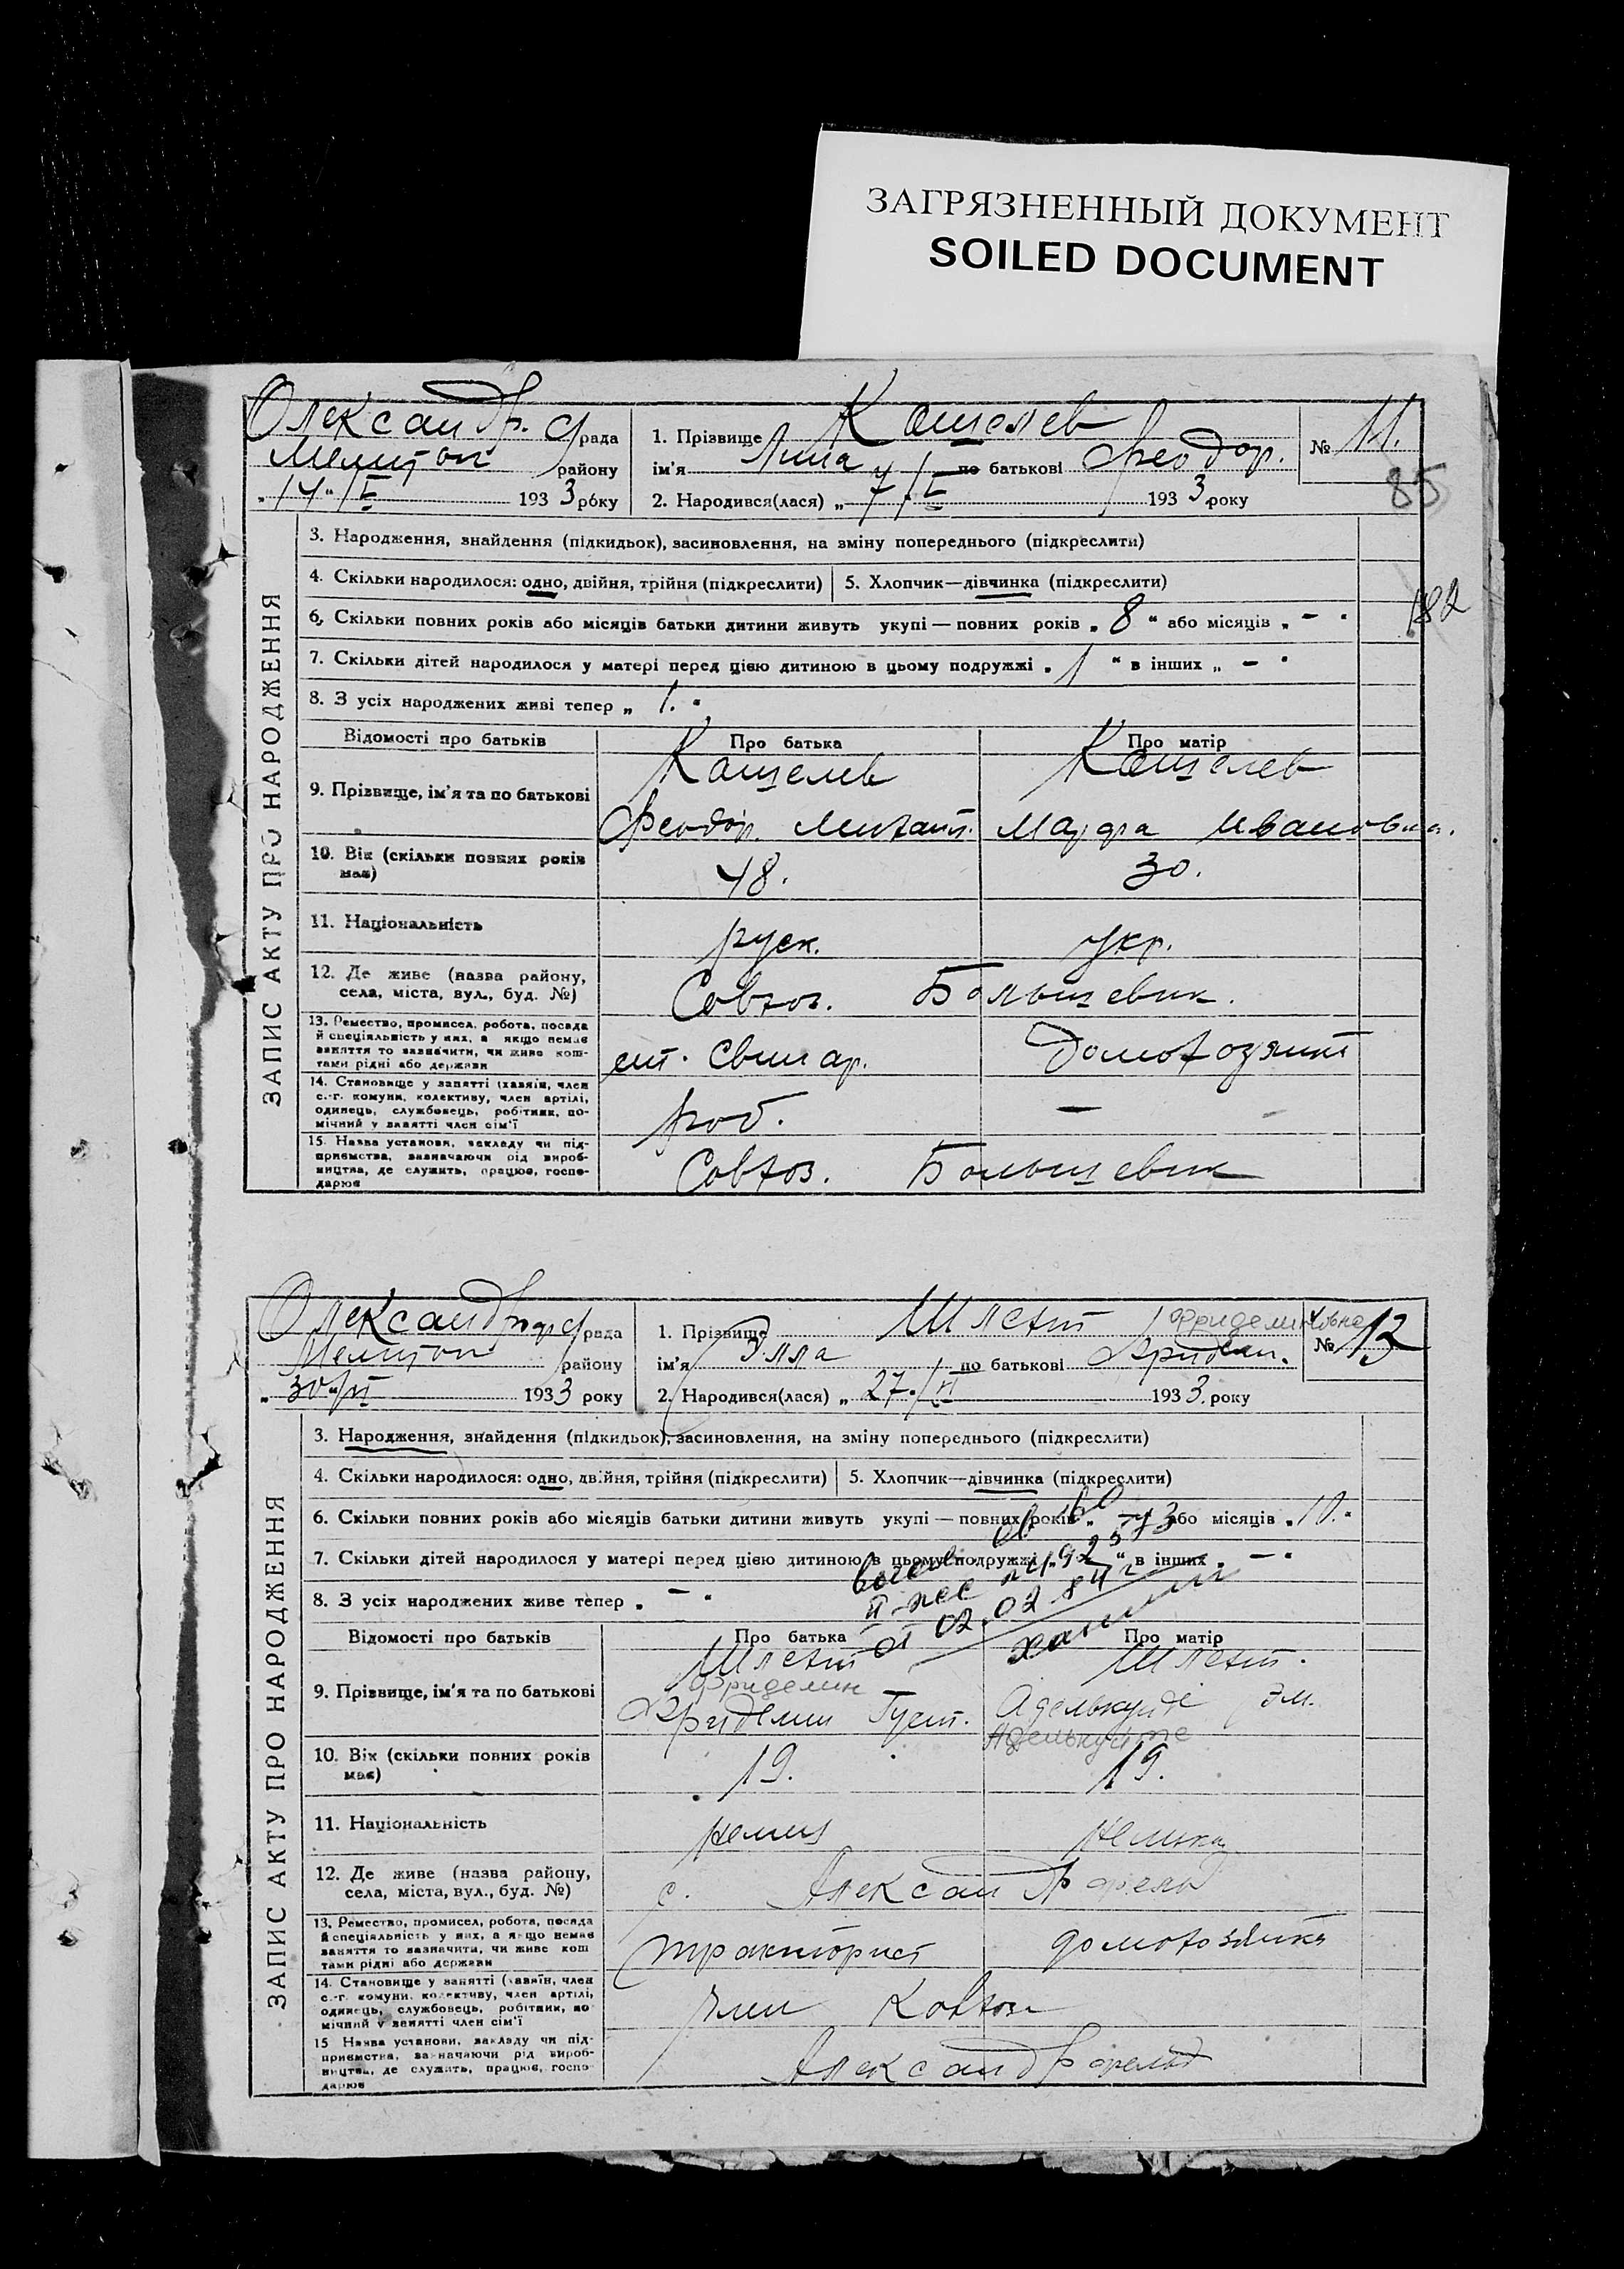 ЗАГРЯЗНЕННЫЙ ДОКУМЕНТ
SOILED DOCUMENT
ЗАПИС АКТУ ПРО НАРОДЖЕННЯ
Олександр. с/рада
району
„14“/I 1933 року
1. Прізвище Кошелев
ім’я по батькові Феодор.
2. Народився(лася) „7“/I 1933 року
№ 11.
85
182
3. Народження, знайдення (підкидьок), засиновлення, на зміну попереднього (підкреслити)
4. Скільки народилося: одно, двійня, трійня (підкреслити)
5. Хлопчик—дівчинка (підкреслити)
6. Скільки повних років або місяців батьки дитини живуть укупі — повних років „8“ або місяців „–“
7. Скільки дітей народилося у матері перед цією дитиною в цьому подружжі „1“ в інших „–“
8. З усіх народжених живі тепер „1.“
Відомості про батьків
Про батька
Про матір
9. Прізвище, ім’я та по батькові
Кошелев
Феодор. Михайл.
Кошелев
Марфа Ивановна.
10. Вік (скільки повних років має)
48.
30.
11. Національність
руск.
укр.
12. Де живе (назва району, села, міста, вул., буд. №)
Совхоз. Большевик.
13. Ремество, промисел, робота, посада й спеціяльність у них, а якщо немає заняття то зазначити, чи живе коштами рідні або держави
ст. свинар.
домохозяйк
14. Становище у занятті (хазяїн, член с.-г. комуни, колективу, член артілі, одинець, службовець, робітник, помічний у занятті член сім’ї
роб.
–
15. Назва установи, закладу чи підприємства, зазначаючи рід виробництва, де служить, працює, господарює
Совхоз. Большевик
ЗАПИС АКТУ ПРО НАРОДЖЕННЯ
с/рада
району
1933 року
1. Прізвище
ім’я Элла по батькові Фридел.
Фриделиновна
2. Народився(лася) „27“/VI 1933 року
№ 12
3. Народження, знайдення (підкидьок), засиновлення, на зміну попереднього (підкреслити)
4. Скільки народилося: одно, двійня, трійня (підкреслити)
5. Хлопчик—дівчинка (підкреслити)
6. Скільки повних років або місяців батьки дитини живуть укупі — повних років „–“ або місяців „10.“
7. Скільки дітей народилося у матері перед цією дитиною в цьому подружжі „ “ в інших „–“
8. З усіх народжених живе тепер „–“
от 02.02.84 г
Відомості про батьків
Про батька
Про матір
9. Прізвище, ім’я та по батькові
Фриделин
Фриделин Густ.
Адельгунде Эм.
10. Вік (скільки повних років має)
19.
19.
11. Національність
немец
немка
12. Де живе (назва району, села, міста, вул., буд. №)
с. Александрфельд
13. Ремество, промисел, робота, посада й спеціяльність у них, а якщо немає заняття то зазначити, чи живе коштами рідні або держави
тракторист
домохозяйка
14. Становище у занятті (хазяїн, член с.-г. комуни, колективу, член артілі, одинець, службовець, робітник, помічний у занятті член сім’ї
член колхоза
15 Назва установи, закладу чи підприємства, зазначаючи рід виробництва, де служить, працює, господарює
Александрфельд